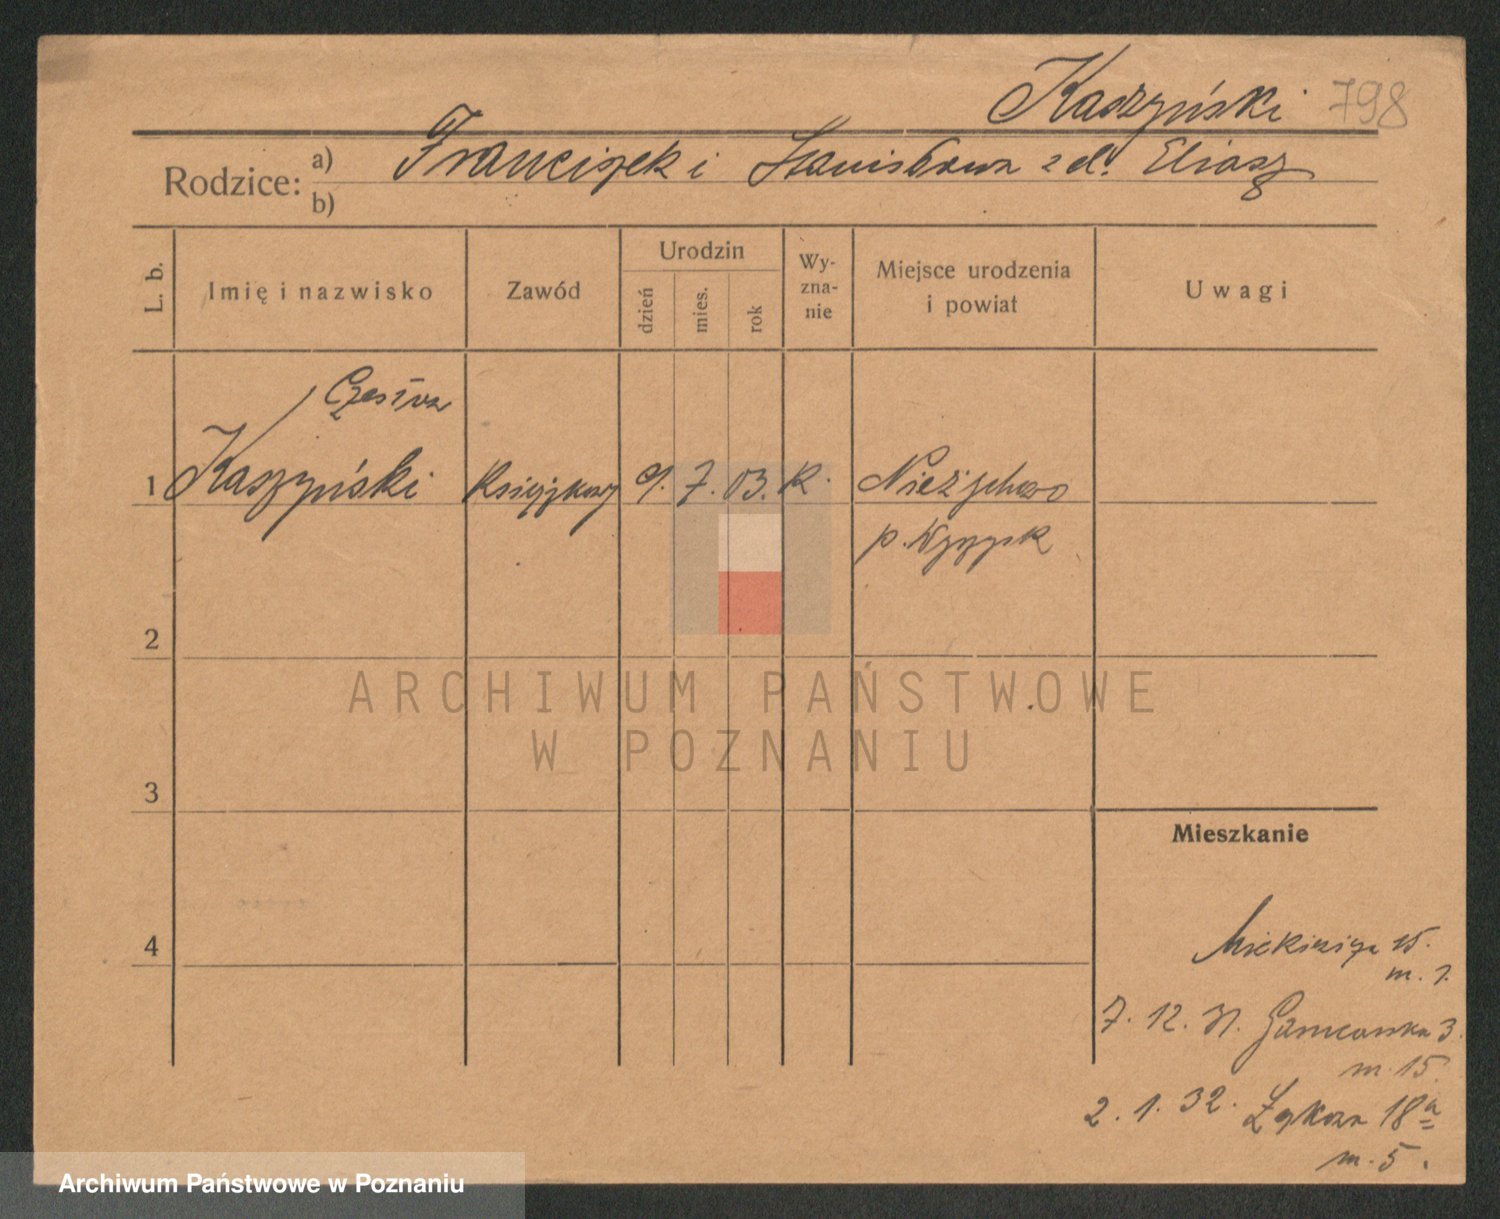 Kaszyński 798
Rodzice: a) Franciszek i Stanisława z d. Eliasz
b)
L. b.
Imię i nazwisko
Zawód
Urodzin
dzień
mies.
rok
Wy-
zna-
nie
Miejsce urodzenia
i powiat
Uwagi
Czesław
1 Kaszyński Księgowy 9. 7. 03. k. Nieżychowo
p. Wyrzysk
2
ARCHIWUM PAŃSTWOWE
W POZNANIU
3
Mieszkanie
4
15.
m. 1.
7. 12. 31. 3.
m. 15.
2. 1. 32. Łąkowa 18a
m. 5.
Archiwum Państwowe w Poznaniu